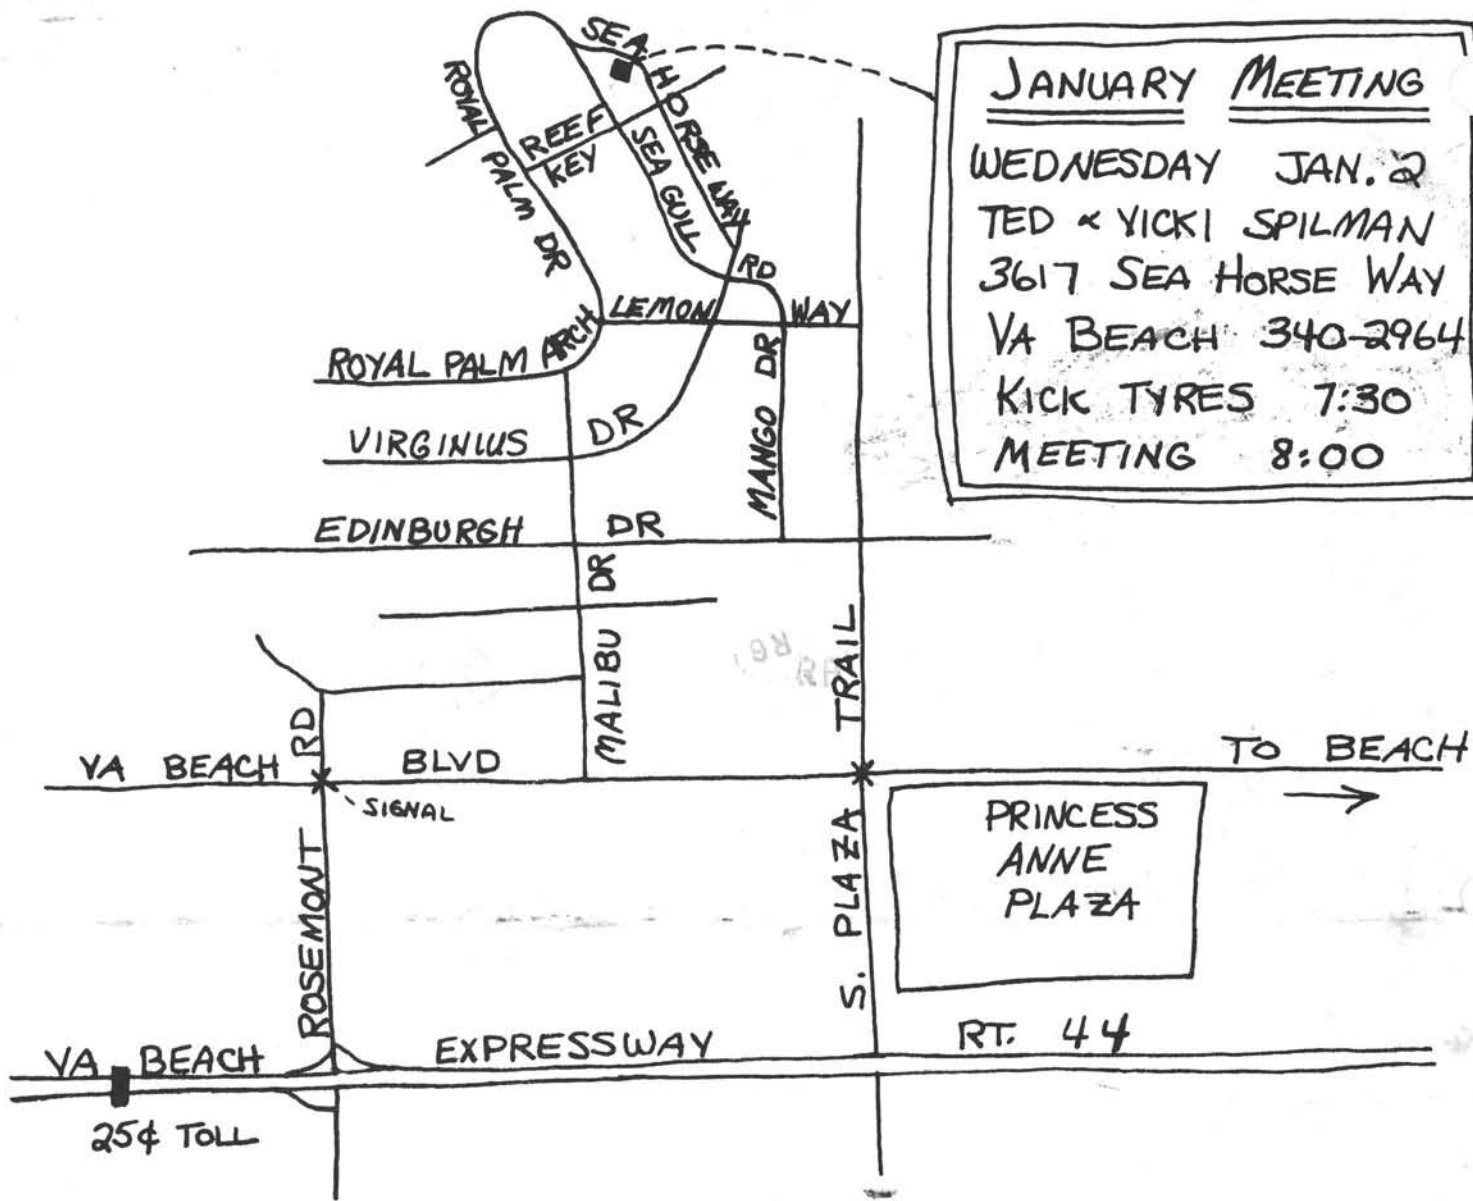 JANUARY MEETING
WEDNESDAY JAN. 2
TED & VICKI SPILMAN
3617 SEA HORSE WAY
VA BEACH 340-2964
KICK TYRES 7:30
MEETING 8:00
SEA HORSE WAY
ROYAL PALM DR
REEF KEY
SEA GULL RD
LEMON WAY
ROYAL PALM ARCH
MANGO DR
VIRGINIUS DR
EDINBURGH DR
MALIBU DR
S. PLAZA TRAIL
ROSEMONT RD
VA BEACH BLVD
TO BEACH
SIGNAL
PRINCESS
ANNE
PLAZA
VA BEACH EXPRESSWAY RT. 44
25¢ TOLL